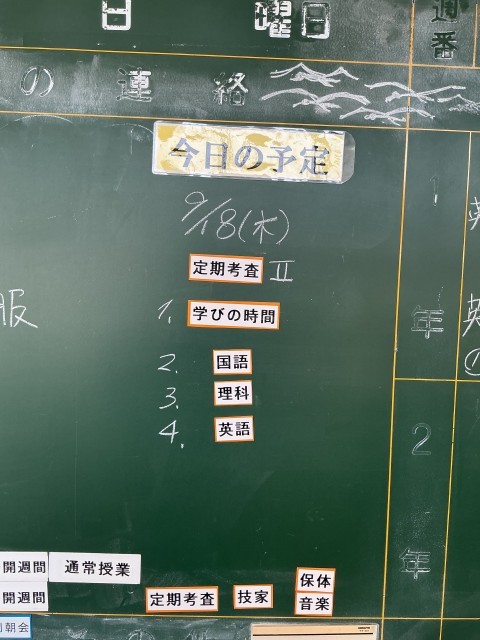 日 曜日
週番
の連絡
今日の予定
9/18(木)
定期考査 II
1. 学びの時間
2. 国語
3. 理科
4. 英語
服
1年
英
英
①
2年
開週間 通常授業
開週間
朝会
定期考査 技家 保体
音楽